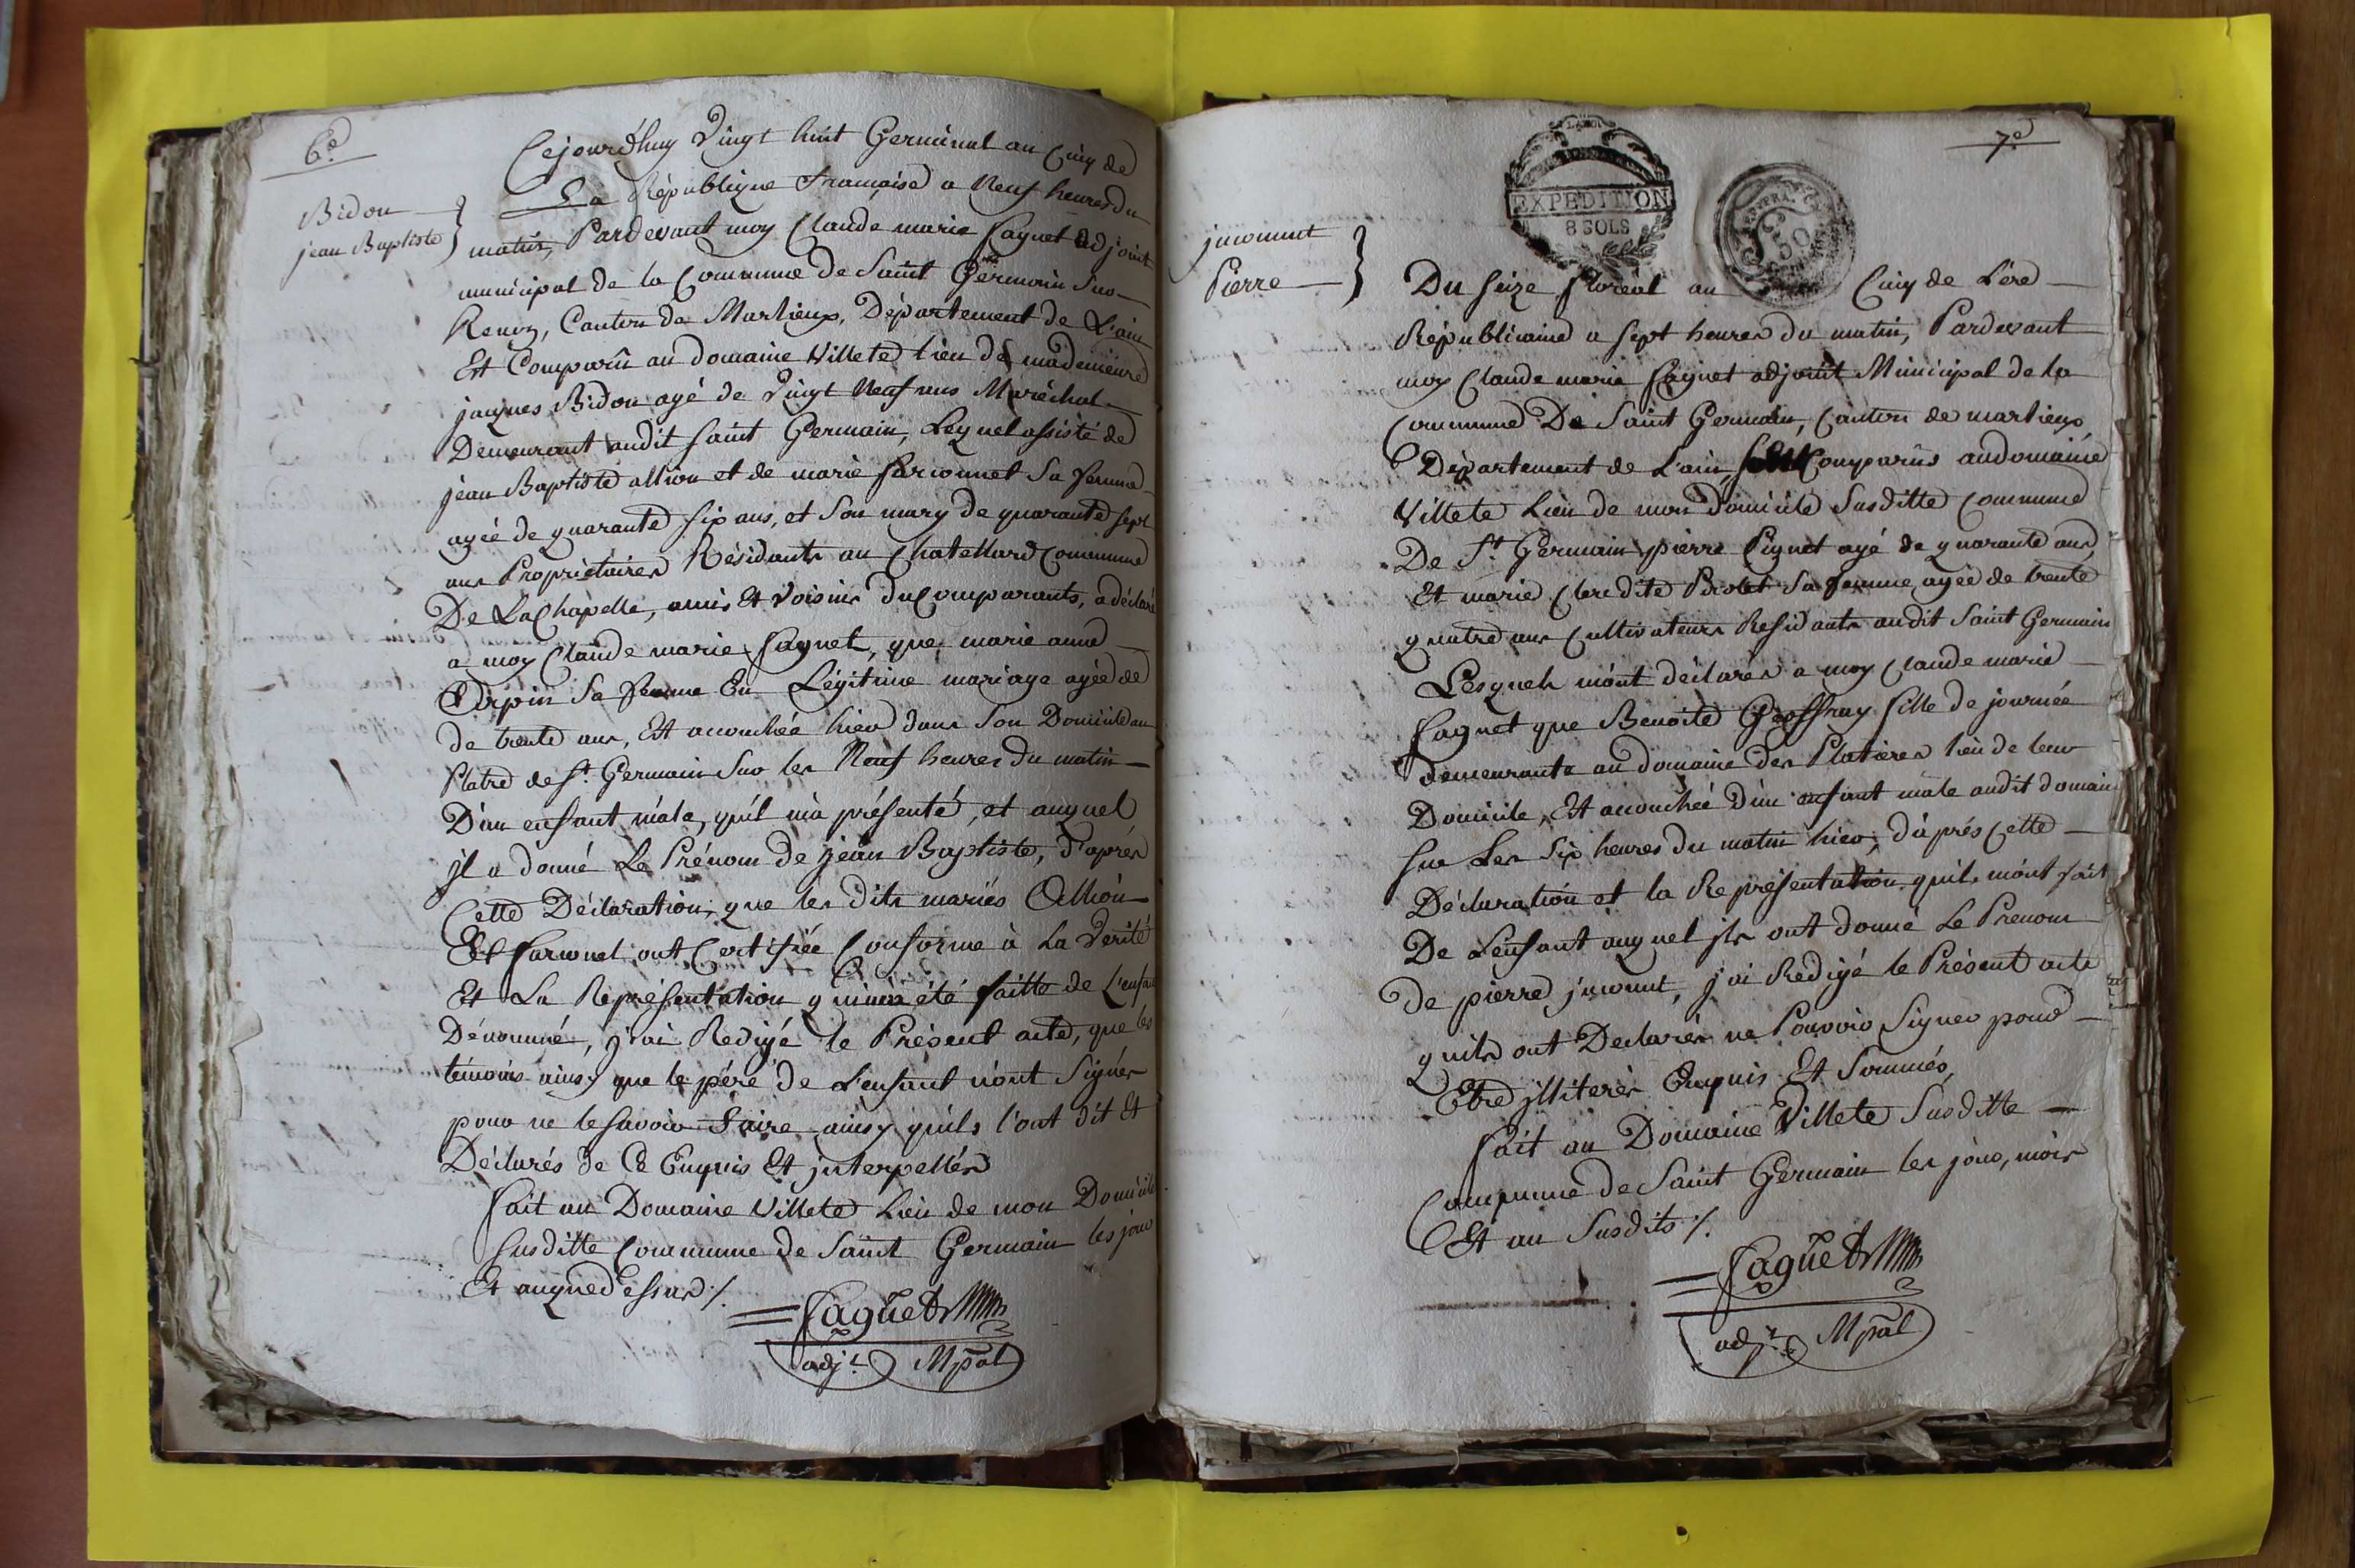 6e
Bidon
jean Baptiste
Cejourd'huy Vingt huit Germinal an Cinq de
La République françoise a Neuf heures du
matin, Pardevant moy Claude marie Faguet adjoint
municipal de la Commune de Saint Germain sur
Renon, Canton de Marlieux, Département de L'ain
Est Comparû au domaine Villete lieu de ma demeure
jaques Bidon agé de Vingt Neuf ans Maréchal
Demeurant audit Saint Germain, Lequel assisté de
jean Baptiste allion et de marie farionnet sa femme
agée de quarante six ans, et son mary de quarante sept
ans Propriétaires Résidants au Chatellard Commune
De La Chapelle, amis Et Voisins du Comparants, a déclaré
a moy Claude marie Faguet, que marie anne
sa femme En Légitime mariage agée de
de trente ans, Est acouchée hier dans son Domicile au
Platre de St. Germain sur les Neuf heures du matin
D'un enfant mâle, qu'il m'a présenté, et auquel
jl a donné Le Prénom de jean Baptiste, d'après
Cette Déclaration, que les dits mariés Allion
Et farionet ont Certifiée Conforme à La Vérité
Et La Représentation qui m'a été faitte de L'enfant
Dénommé, j'ai Redigé le Présent acte, que les
témoins ainsy que le père de L'enfant n'ont Signés
pour ne le savoir faire ainsy qu'ils l'ont dit Et
Déclarés de Ce Enquis Et jnterpellés
fait au Domaine Villete Lieu de mon Domicile
susditte Commune de Saint Germain les jour
Et an que dessus ./.
Faguet
adjt. Mpal
7e
EXPEDITION
8 SOLS
50
jnconnut
Pierre
Du seize floréal an Cinq de L'ére
Républicaine a sept heures du matin, Pardevant
moy Claude marie Faguet adjoint Municipal de la
Commune De Saint Germain, Canton de marlieux
Département de L'ain, Comparûs au domaine
Villete Lieu de mon Domicile susditte Commune
De St. Germain pierre Piguet agé de quarante ans
Et marie Clerc dite Sa femme agée de trente
quatre ans Cultivateurs Résidants audit Saint Germain
Lesquels m'ont déclarés a moy Claude marie
Faguet que Benoite Geoffray fille de journée
demeurante au domaine des Platieres lieu de leur
Domicile, Est acouchée d'un enfant mâle audit domaine
sur Les six heures du matin hier, d'après Cette
Déclaration et la Représentation qu'ils m'ont fait
De L'enfant auquel jls ont donné Le Prénom
de pierre jnconnut, j'ai Redigé le Présent acte
qu'ils ont Declarés ne Pouvoir Signer pour
Etre jlliterés Enquis Et Sommés,
fait au Domaine Villete susditte
Commune de Saint Germain les jour, mois
Et an susdits ./.
Faguet
adjt. Mpal